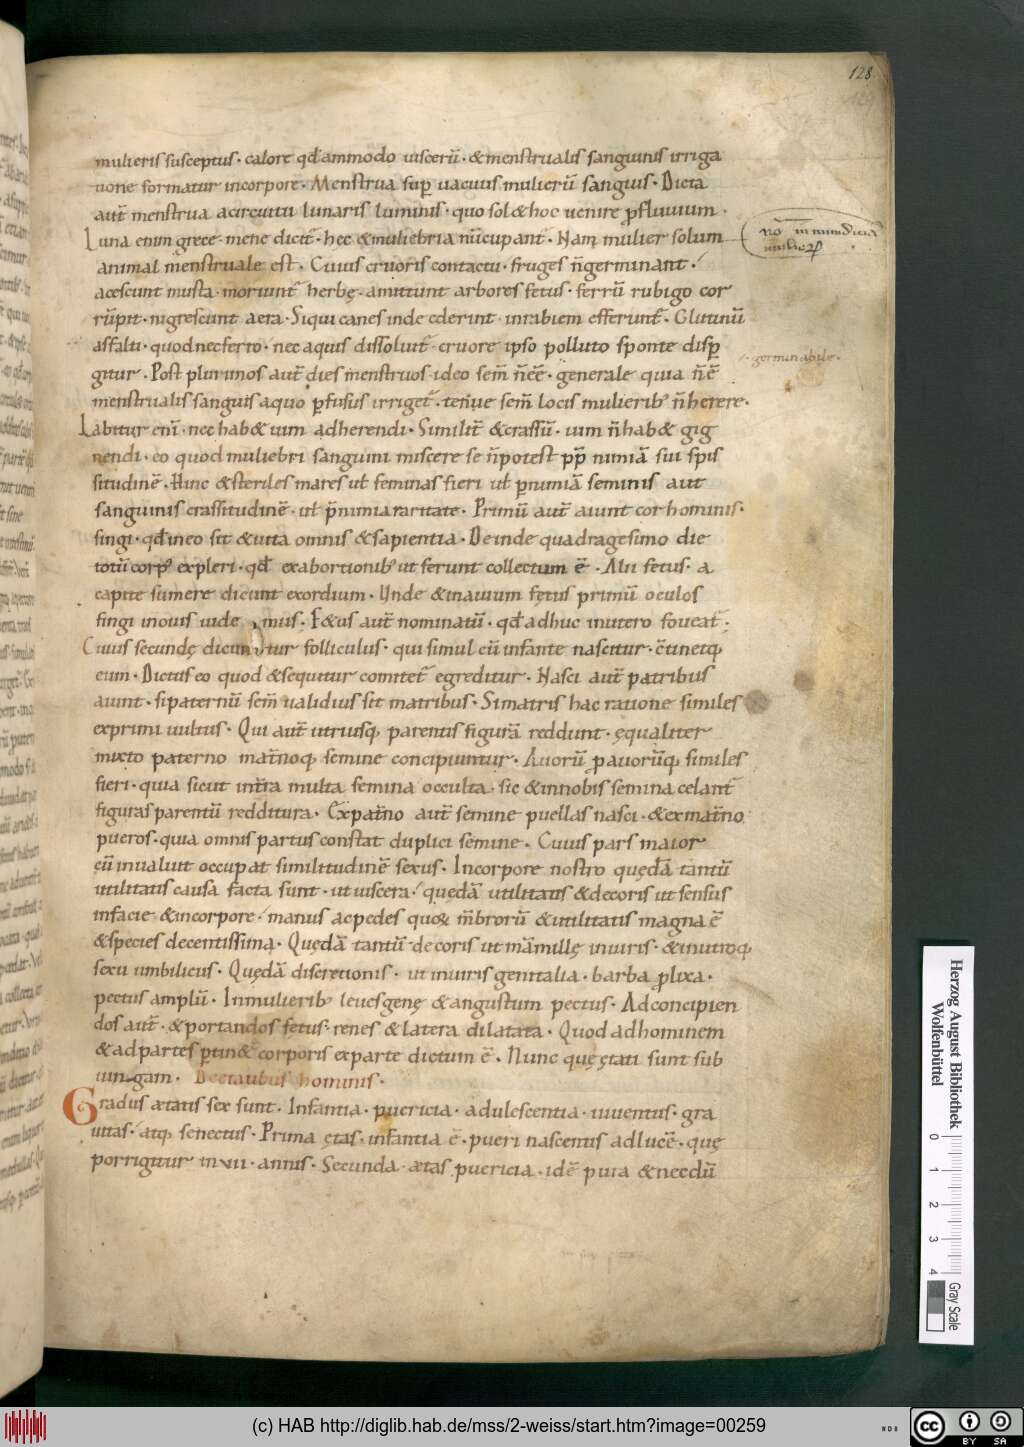 128
mulieris susceptus · calore qđammodo uiscerū · & menstrualis sanguinis irriga
tione formatur incorpore · Menstrua sup uacuus mulierū sanguis · Dicta
aut̄ menstrua acircuitu lunaris luminis · quo sol& hoc uenire ꝓfluuium ·
Luna enim grece · mene dicit̄ · hec & muliebria nūcupant̄ · Nam mulier solum
animal menstruale est · Cuius cruoris contactu · fruges ñgerminant ·
acescunt musta · moriunt̄ herbę · amittunt arbores fetus · ferrū rubigo cor
rūpit · nigrescunt aera · Siqui canes inde ederint · inrabiem efferunt̄ · Glutinū
asfalti · quodnecferro · nec aquis dissoluit̄ · cruore ipso polluto sponte disꝑ
gitur · Post plurimos aut̄ dies menstruos · ideo sem̄ ñ ē · generale quia ñ ē
menstrualis sanguis aquo ꝑfusus irriget̄ · tenue sem̄ locis mulieribꝰ ñ herere ·
Labitur eni · nec hab& uim adherendi · Similit̄ & crassū · uim ñ hab& gig
nendi · eo quod muliebri sanguini miscere se ñ potest ꝓp̄ nimiā sui spis
situdinē · Hinc & steriles mares ut feminas fieri ut ꝑnimiā seminis aut
sanguinis crassitudinē · ut p̄nimia raritate · Primū aut̄ aiunt cor hominis ·
fingi · qđ ineo sit & uita omnis & sapientia · Deinde quadragesimo die
totū corpꝰ expleri · qđ exabortionibꝰ ut ferunt collectum ē · Alii fetus · a
capite sumere dicunt exordium · Unde & inauium fętus primū oculos
fingi inouis uide mus · F&us aut̄ nominatū · qđ adhuc inutero foueat̄ ·
Cuius secundę dicuntur folliculus · qui simul cū infante nascitur · ctinetq;
eum · Dictus eo quod & sequitur comitet̄ egreditur · Nasci aut̄ patribus
aiunt · sipaternū sem̄ ualidius sit matribus · Simatris hac ratione similes
exprimi uultus · Qui aut̄ utriusq; parentis figurā reddunt · ęqualiter
mixto paterno mat̄noq; semine concipiuntur · Auorū ꝓauorūq; similes
fieri · quia sicut int̄ra multa semina occulta · sic & innobis semina celant̄
figuras parentū redditura · Expat̄no aut̄ semine puellas nasci · & exmat̄no
pueros · quia omnis partus constat duplici semine · Cuius pars maior
cū inualuit occupat similitudinē sexus · Incorpore nostro quędā tantū
utilitatis causa facta sunt · ut uiscera · quędā utilitatis & decoris ut sensus
infacie · & incorpore · manus ac pedes quoꝝ m̄brorū & utilitatis magna ē
& species decentissima · Quędā tantū decoris ut māmillę inuiris · & inutroq;
sexu umbilicus · Quędā discretionis · ut inuiris genitalia · barba ꝓlixa ·
pectus amplū · Inmulieribꝰ leues genę & angustum pectus · Adconcipien
dos aut̄ · & portandos fetus · renes & latera dilatata · Quod adhominem
& adpartes ꝑtin& corporis exparte dictum ē · Nunc quę ętati sunt sub
iungam · De etatibus hominis ·
Gradus ætatis sex sunt · Infantia · puericia · adulescentia · iuuentus · gra
uitas · atq; senectus · Prima ętas · infantia ē · pueri nascentis adlucē · quę
porrigitur in vii · annis · Secunda · ætas puericia · idē pura & necdū
germinabile ·
Herzog August Bibliothek
Wolfenbüttel
0 1 2 3 4
Gray Scale
(c) HAB http://diglib.hab.de/mss/2-weiss/start.htm?image=00259
cc BY SA